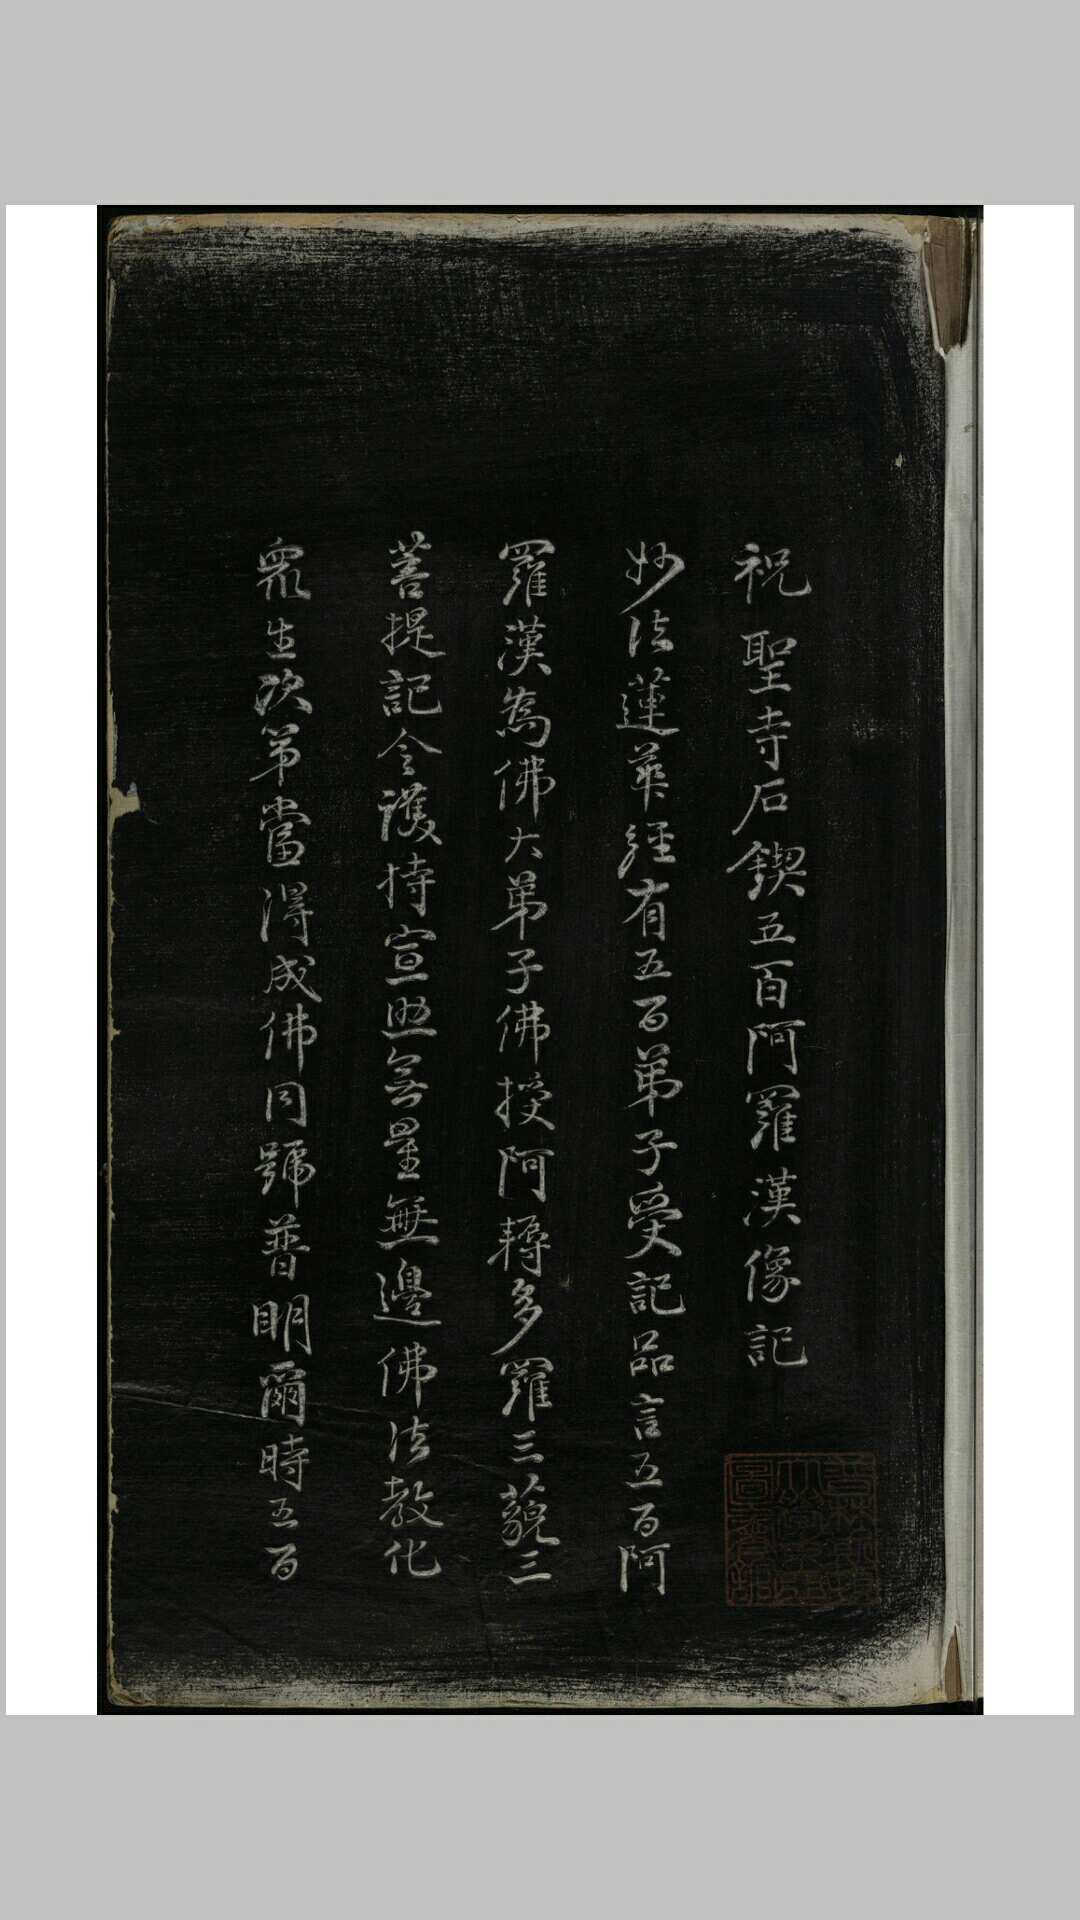 祝聖寺石鍥五百阿羅漢像記
妙法蓮華經有五百弟子受記品言五百阿
羅漢為佛大弟子佛授阿耨多羅三藐三
菩提記令護持宣 無量無邊佛法教化
眾生次第當得成佛同號普明爾時五百